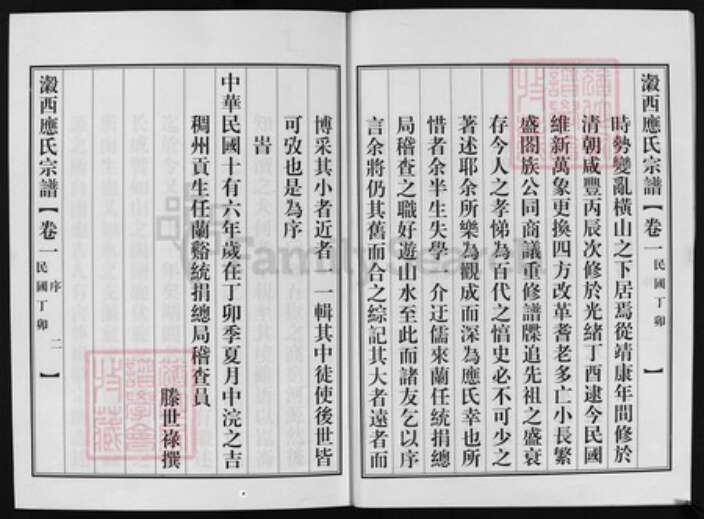 瀫西應氏宗譜【卷一 民國丁卯】
時勢變亂橫山之下居焉從靖康年間修於
清朝咸豐丙辰次修於光緒丁酉逮今民國
維新萬象更換四方改革耆老多亡小長繁
盛閤族公同商議重修譜牒追先祖之盛衰
存今人之孝悌為百代之信史必不可少之
著述耶余所樂為觀成而深為應氏幸也所
惜者余半生失學一介迂儒來蘭任統捐總
局稽查之職好遊山水至此而諸友乞以序
言余將仍其舊而合之綜記其大者遠者而
博采其小者近者一輯其中徒使後世皆
可攷也是為序
旹
中華民國十有六年歲在丁卯季夏月中浣之吉
稠州貢生任蘭谿統捐總局稽查員
滕世祿撰
瀫西應氏宗譜【卷一 序 民國丁卯 二】
FamilySearch